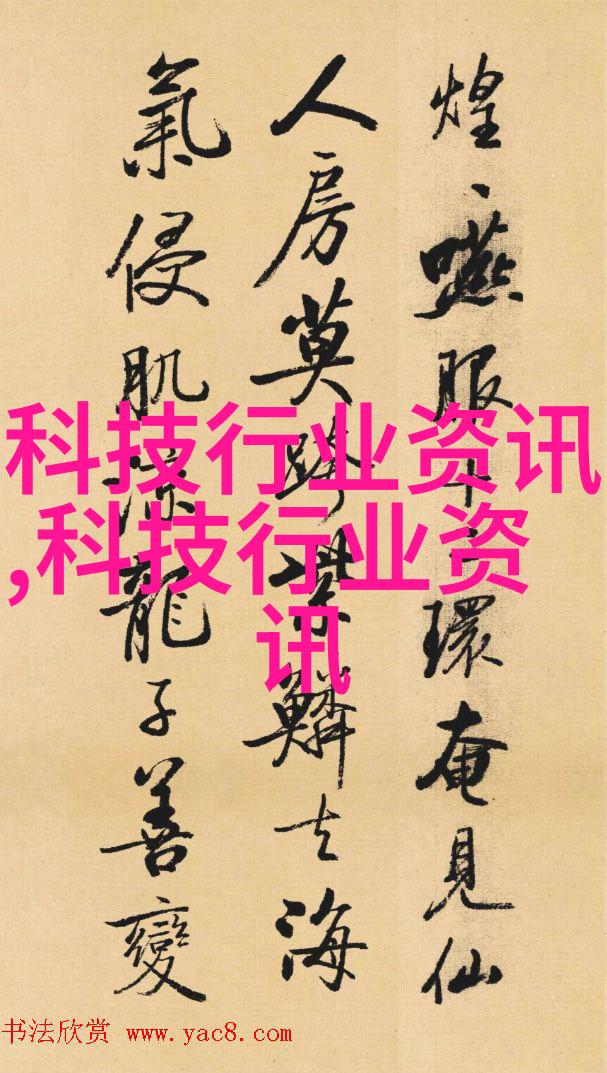 煌、嚥服十二環奄見仙
人房莫跨紫鱗去海
氣侵肌涼龍子善變
科技行业资讯
,科技行业资
讯
书法欣赏 www.yac8.com